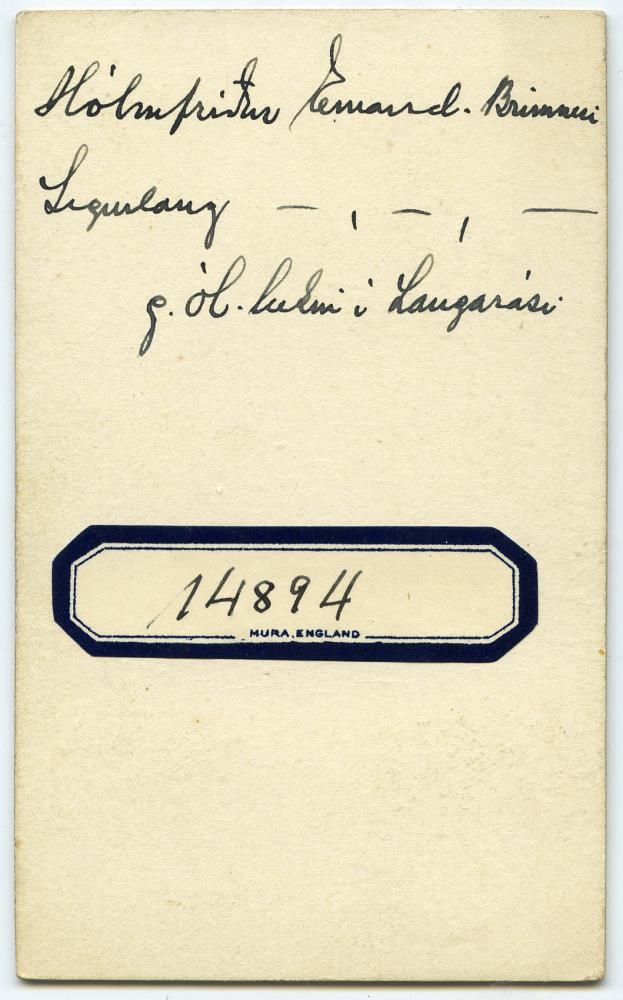 Hólmfríður Einarsd. Brimnesi
Sigurlaug — , — , —
g. Ól. lækni í Laugarási
14894
MURA, ENGLAND